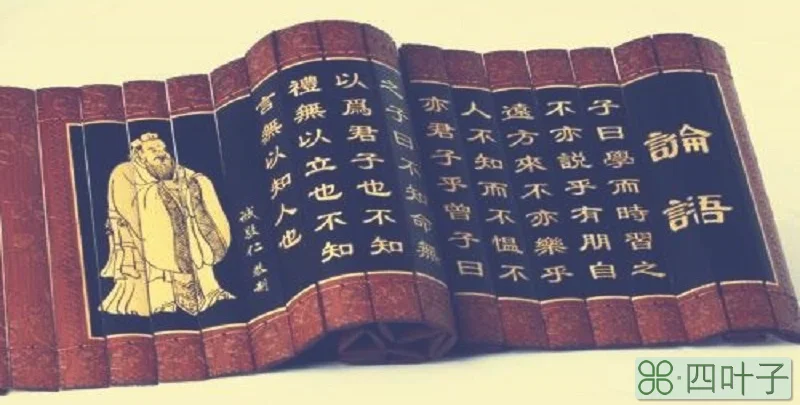 論語
子曰學而時習之
不亦説乎有朋自
遠方來不亦樂乎
人不知而不慍不
亦君子乎曾子曰
之子曰不知命無
以爲君子也不知
禮無以立也不知
言無以知人也
四叶子